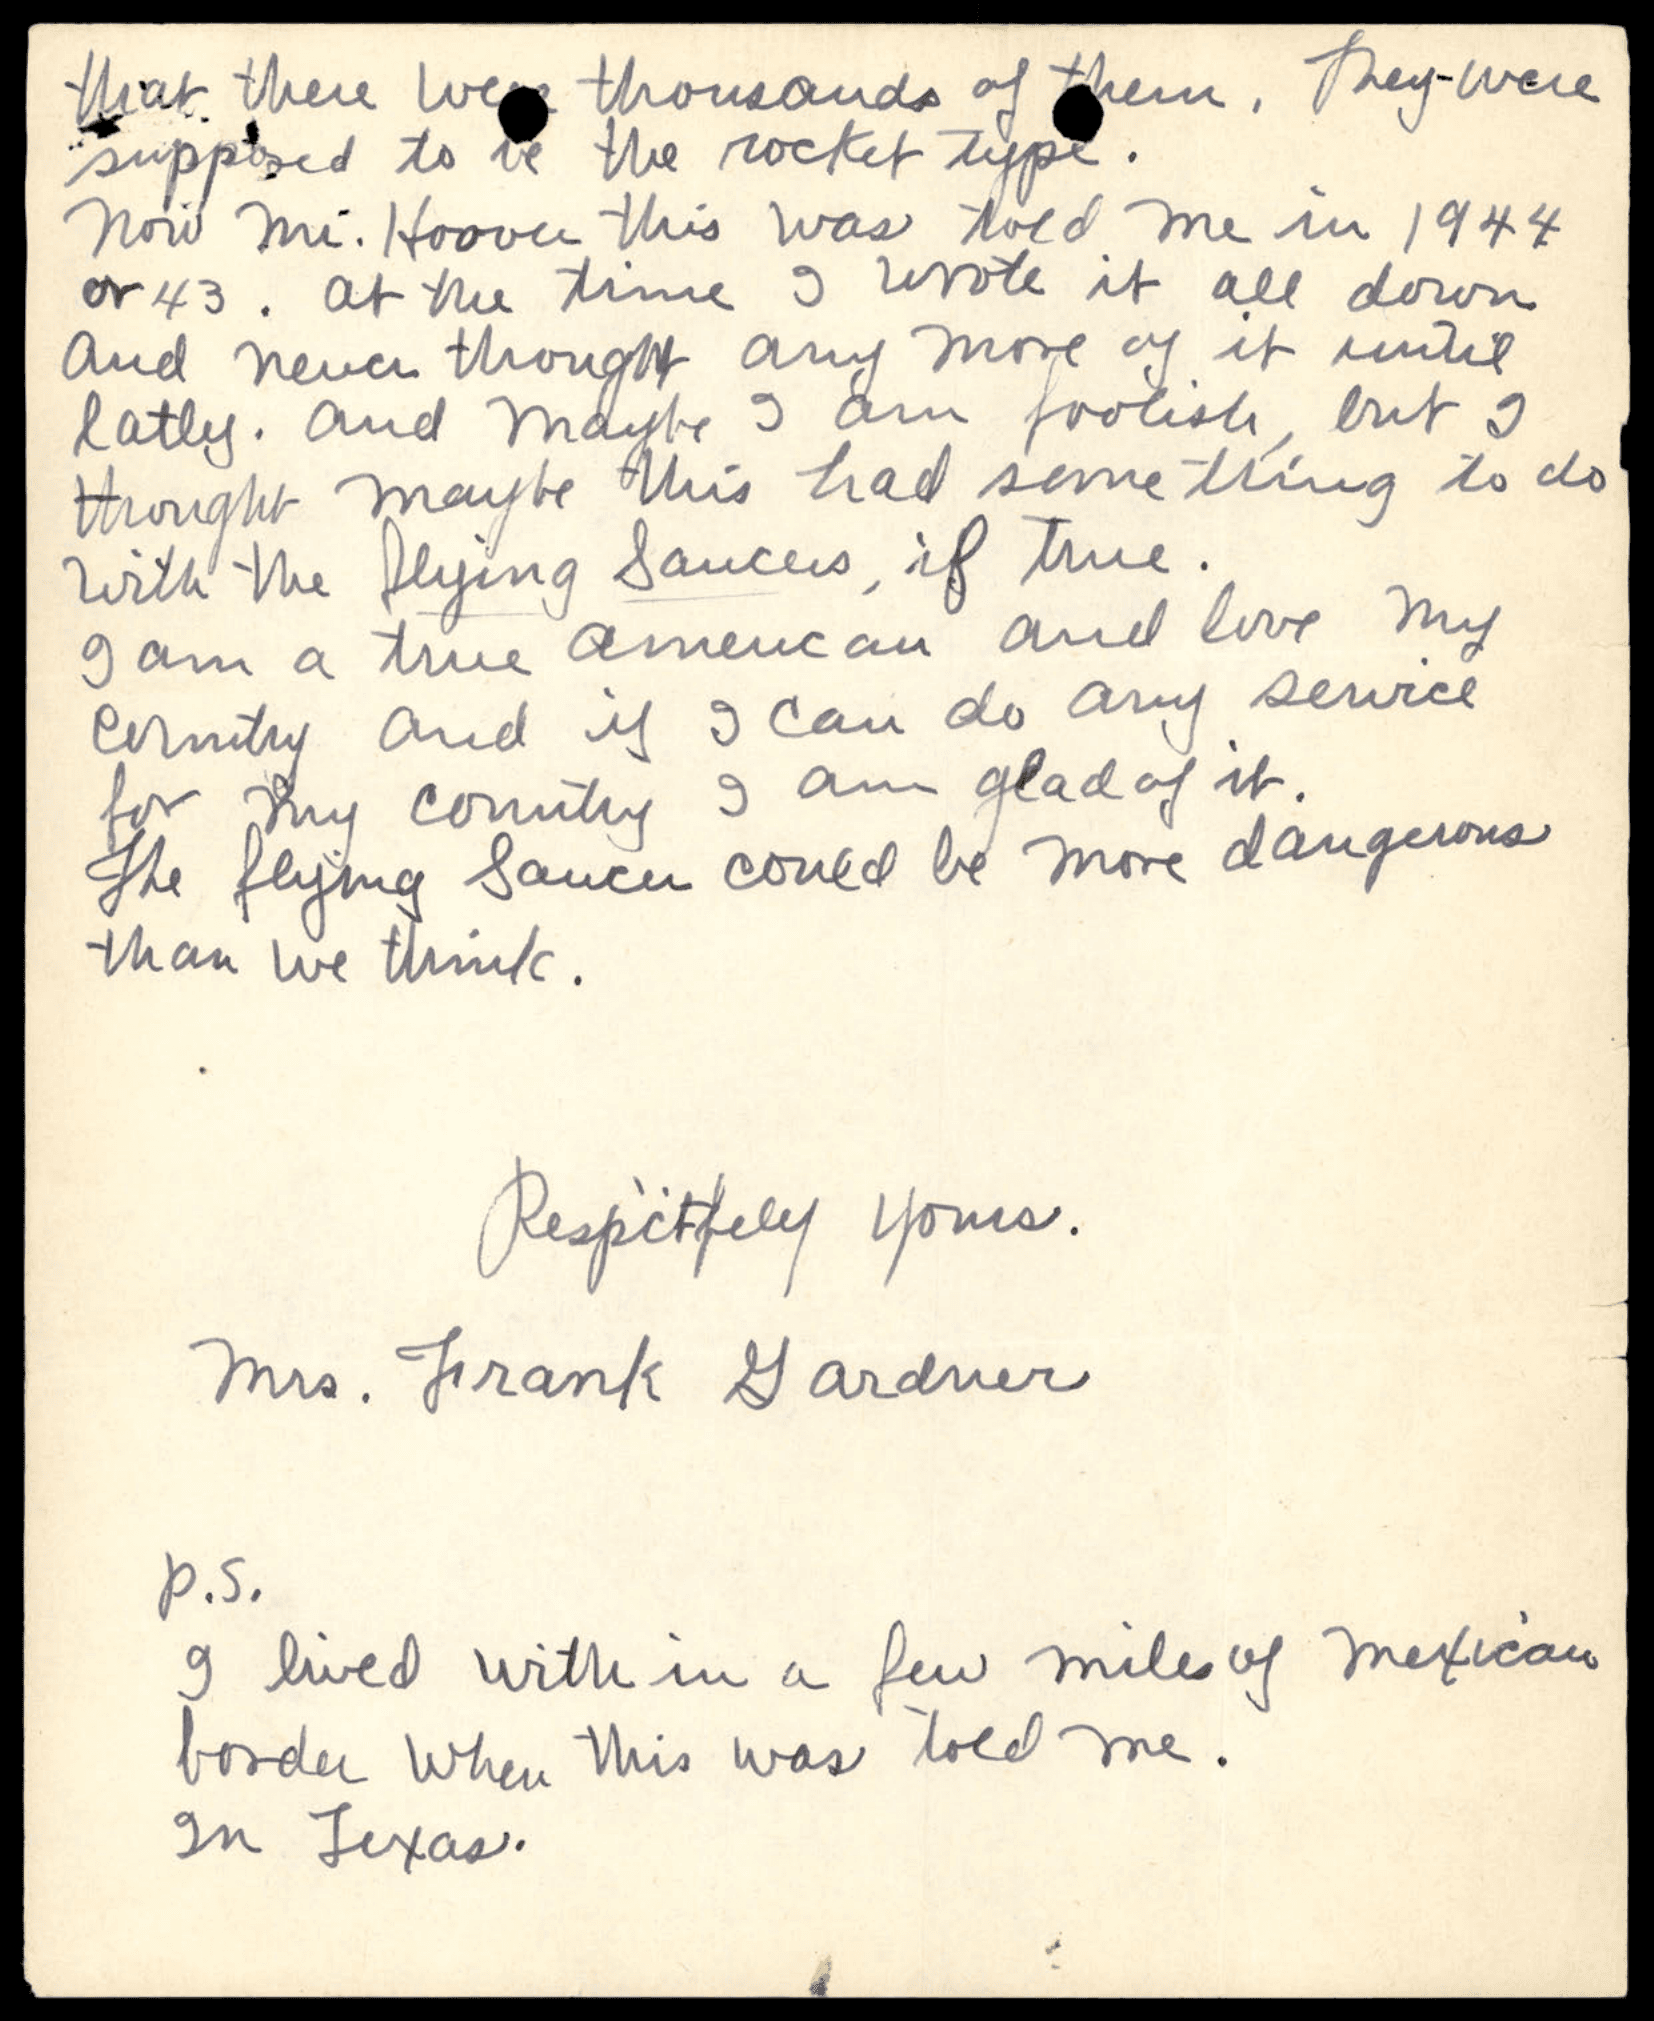 that there were thousands of them. They were
supposed to be the rocket type.
Now Mr. Hoover this was told me in 1944
or 43. at the time I wrote it all down
and never thought any more of it until
latly. and maybe I am foolish, but I
thought maybe this had something to do
with the flying Saucers, if true.
I am a true American and love my
country and if I can do any service
for my country I am glad of it.
The flying Saucer could be more dangerous
than we think.
Respictfely yours.
Mrs. Frank Gardner
P.S.
I lived with in a few miles of Mexican
border when this was told me.
In Texas.